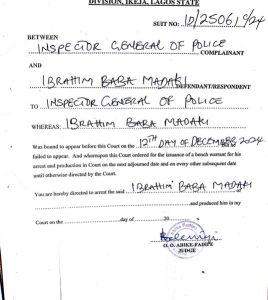 DIVISION, IKEJA, LAGOS STATE
SUIT NO: ID/25061 9/24
BETWEEN
INSPECTOR GENERAL OF POLICE COMPLAINANT
AND
IBRAHIM BABA MADAKI DEFENDANT/RESPONDENT
TO INSPECTOR GENERAL OF POLICE
WHEREAS: IBRAHIM BABA MADAKI
Was bound to appear before this Court on the 12TH DAY OF DECEMBER 2024
failed to appear. And whereupon this Court ordered for the issuance of a bench warrant for his
arrest and production in Court on the next adjourned date and on every other subsequent date
until otherwise directed by the Court.
You are hereby directed to arrest the said IBRAHIM BABA MADAKI
and produced him in my
Court on the day of 20
JUDGE